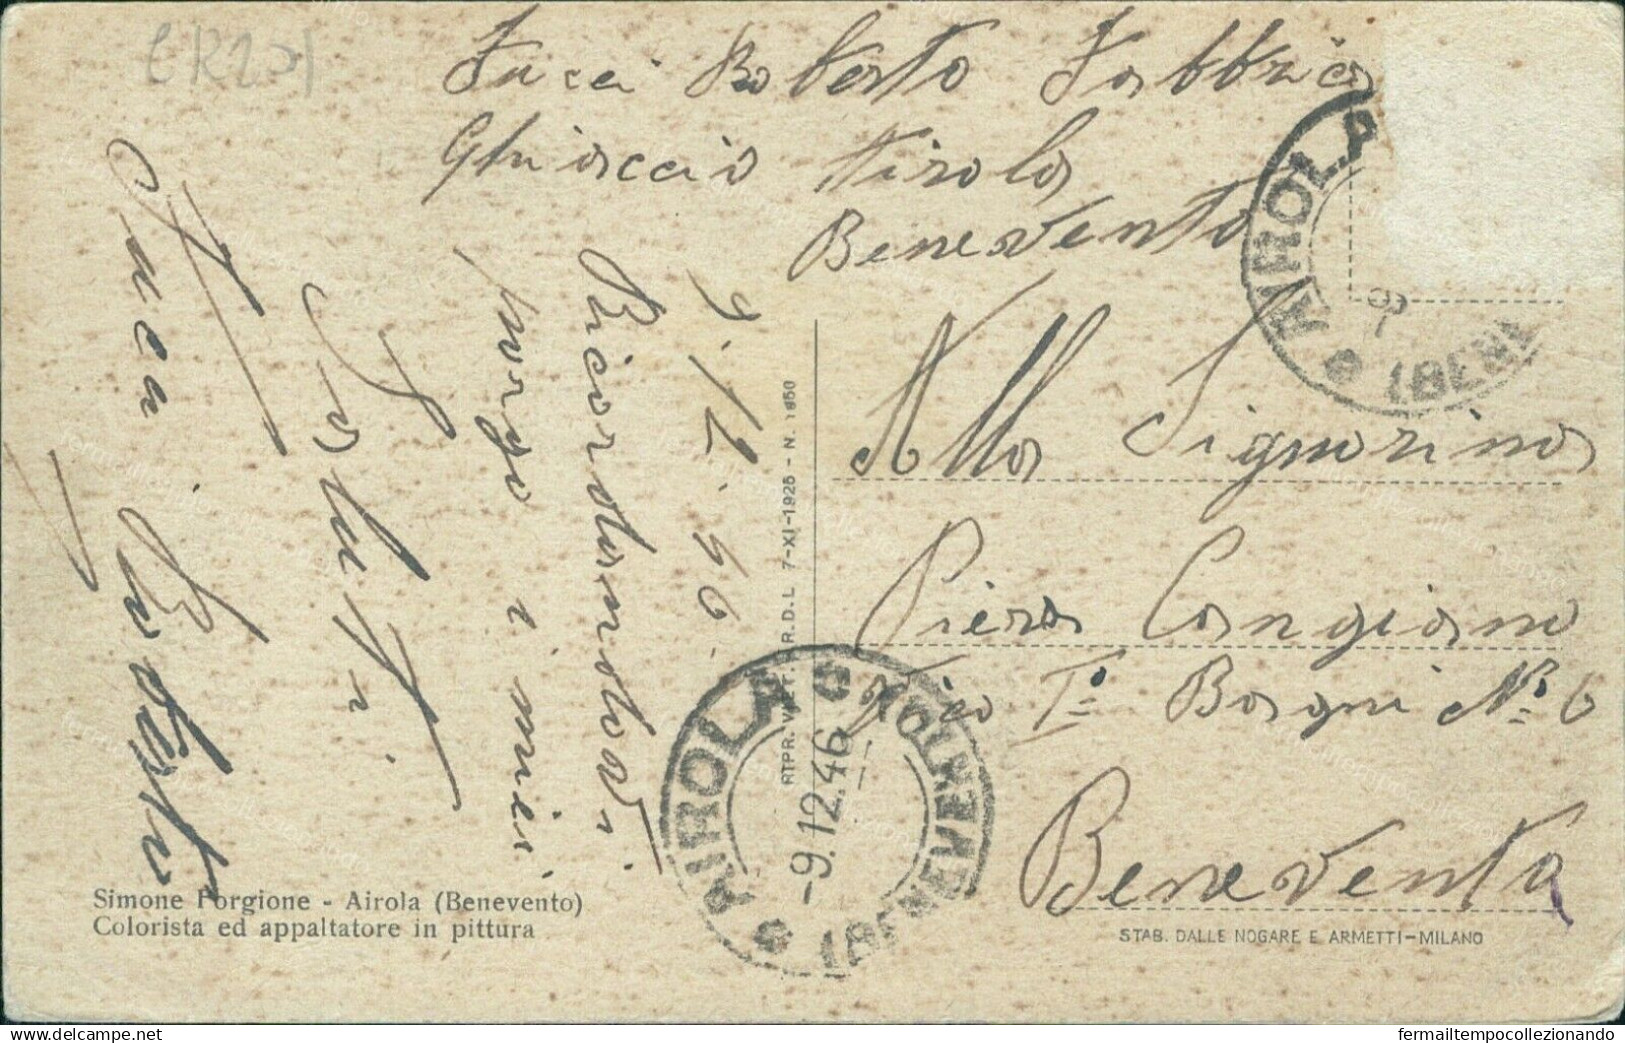 CR271
Fucci Roberto Fabbrica
Ghiaccio Airola
Benevento
Alla Signorina
Piera Cangiano
Vico I° Borgni N° 6
Benevento
9.12.46
Ricordandoti
porgo i miei
saluti
Fucci Roberto
AIROLA
(BENE
AIROLA
(BENEVENTO)
-9.12.46
RTPR. VIETT. R.D.L. 7-XI-1925 - N. 1950
Simone Forgione - Airola (Benevento)
Colorista ed appaltatore in pittura
STAB. DALLE NOGARE E ARMETTI-MILANO
delcampe.net
fermailtempocollezionando